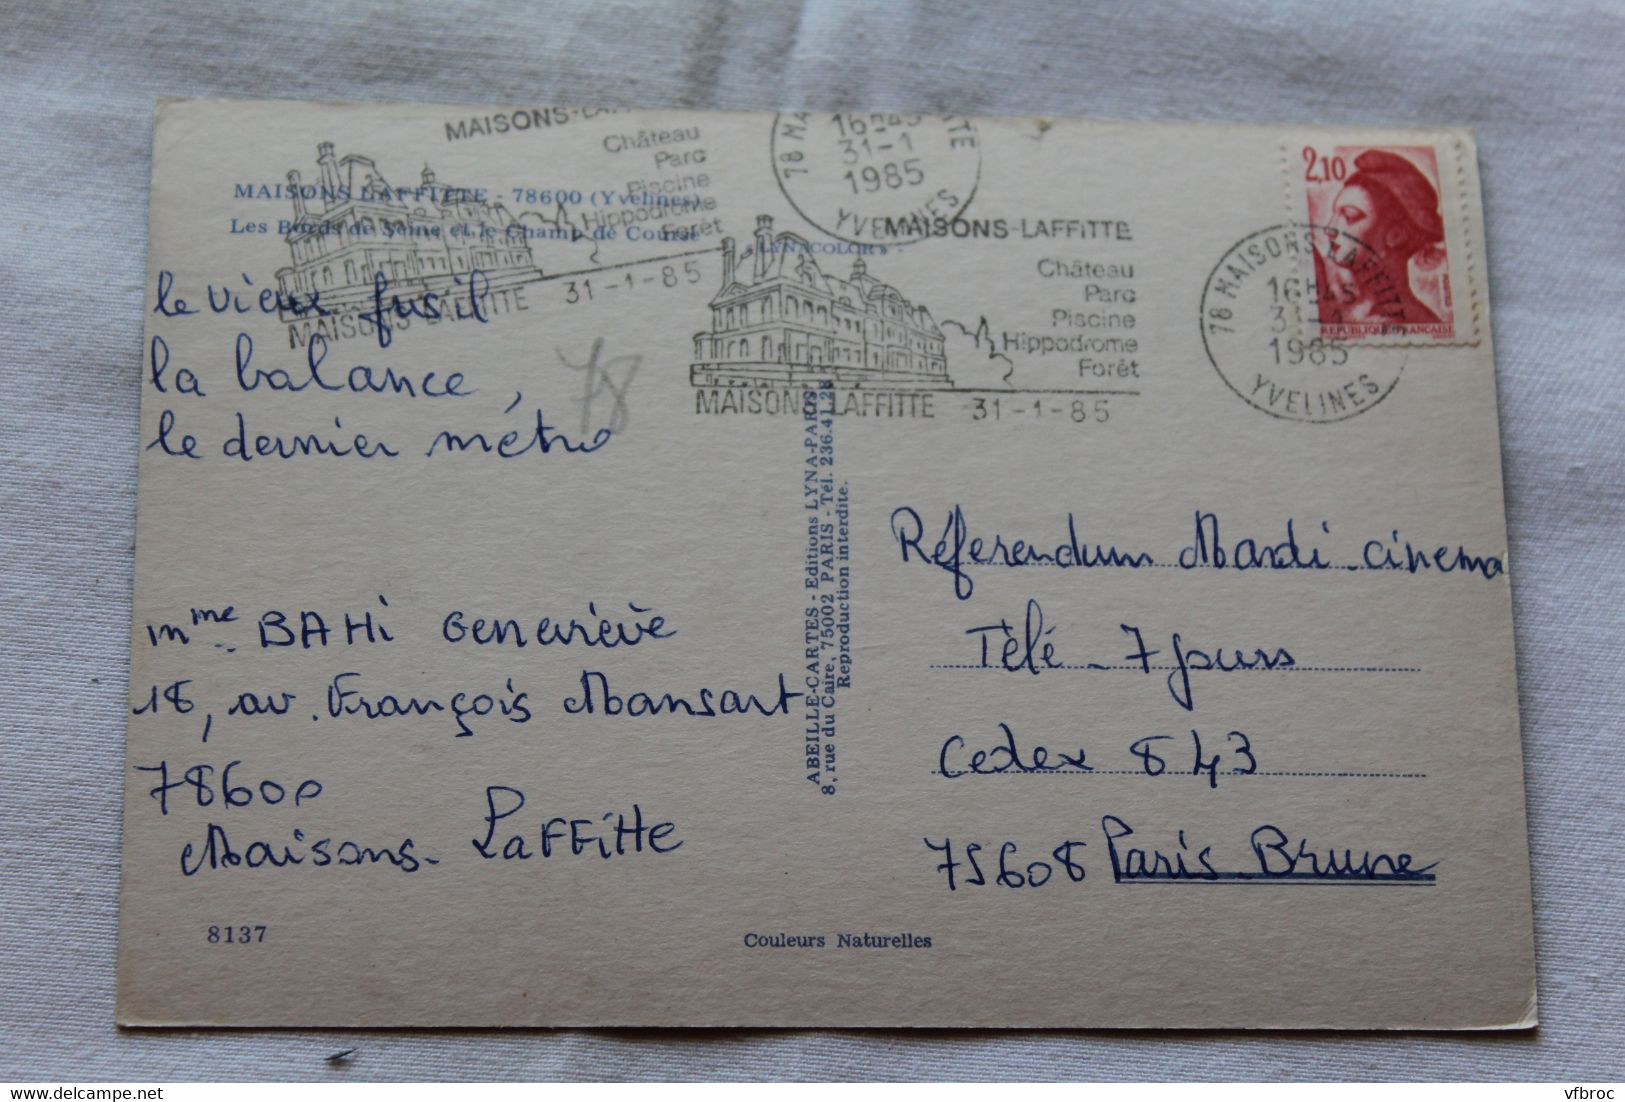 MAISONS LAFFITTE - 78600 (Yvelines)
Les Bords de Seine et le Champ de Course
« LYNACOLOR »
MAISONS-LA
Château
Parc
Piscine
Hippodrome
Forêt
MAISONS-LAFFITTE 31-1-85
16H45
31-1
1985
YVELINES
MAISONS-LAFFITTE
Château
Parc
Piscine
Hippodrome
Forêt
MAISONS LAFFITTE 31-1-85
78 MAISONS LAFFITTE
16H45
31-1
1985
YVELINES
2,10
REPUBLIQUE FRANCAISE
le vieux fusil
la balance,
le dernier métro
78
mme BAHi Geneviève
18, av. François Mansart
78600
Maisons-Laffitte
8137
ABEILLE-CARTES - Editions LYNA-PARIS
8, rue du Caire, 75002 PARIS - Tél. 236.41.28
Reproduction interdite.
Couleurs Naturelles
Référendum Mardi-cinema
Télé-7 jours
Cedex 843
75608 Paris-Brune
delcampe.net
vfbroc